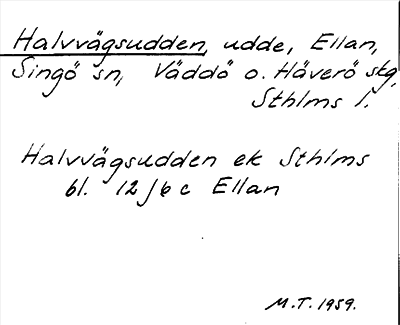 Halvvägsudden, udde, Ellan,
Singö sn, Väddö o. Häverö skg,
Sthlms l.
Halvvägsudden ek Sthlms
bl. 12 J 6 c Ellan
M.T. 1959.